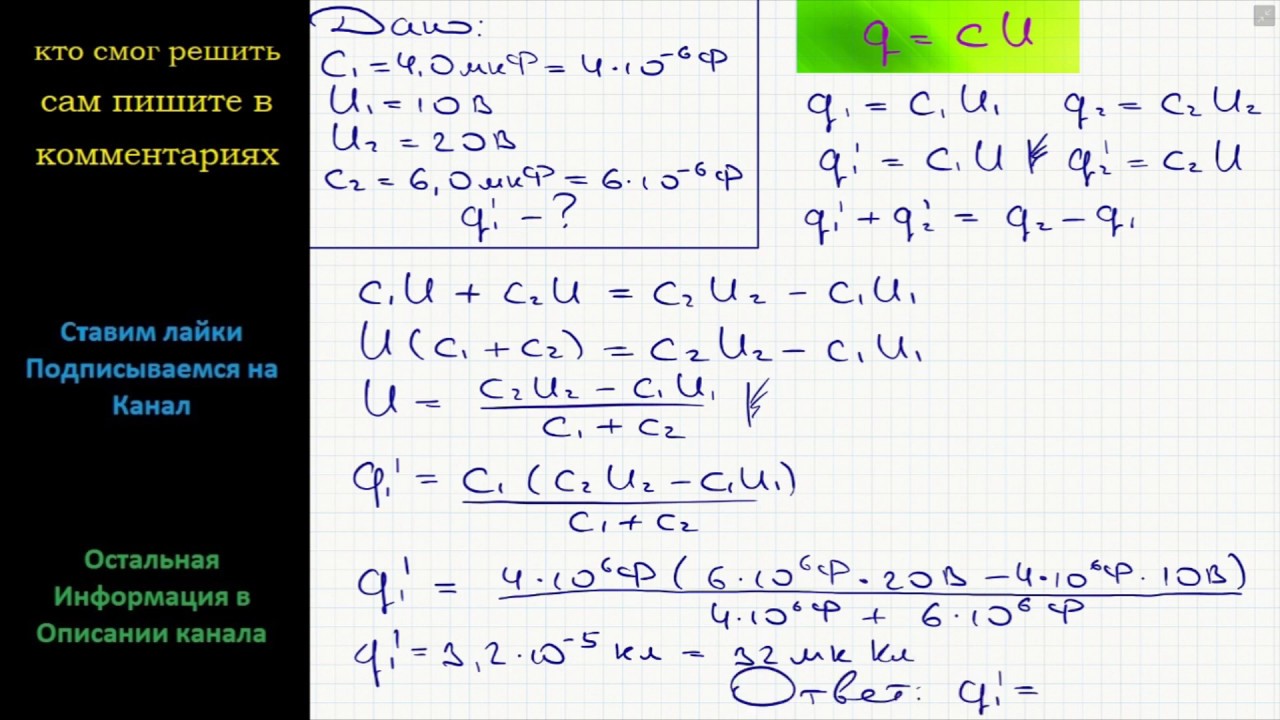 кто смог решить
сам пишите в
комментариях
Ставим лайки
Подписываемся на
Канал
Остальная
Информация в
Описании канала
Дано:
C₁ = 4,0 мкФ = 4·10⁻⁶ Ф
U₁ = 10 В
U₂ = 20 В
C₂ = 6,0 мкФ = 6·10⁻⁶ Ф
q₁' - ?
q = CU
q₁ = C₁U₁ q₂ = C₂U₂
q₁' = C₁U q₂' = C₂U
q₁' + q₂' = q₂ - q₁
C₁U + C₂U = C₂U₂ - C₁U₁
U(C₁ + C₂) = C₂U₂ - C₁U₁
U = (C₂U₂ - C₁U₁) / (C₁ + C₂)
q₁' = C₁(C₂U₂ - C₁U₁) / (C₁ + C₂)
q₁' = 4·10⁶Ф(6·10⁶Ф·20В - 4·10⁶Ф·10В) / (4·10⁶Ф + 6·10⁶Ф)
q₁' = 3,2·10⁻⁵ кл = 32 мк Кл
Ответ: q₁' =